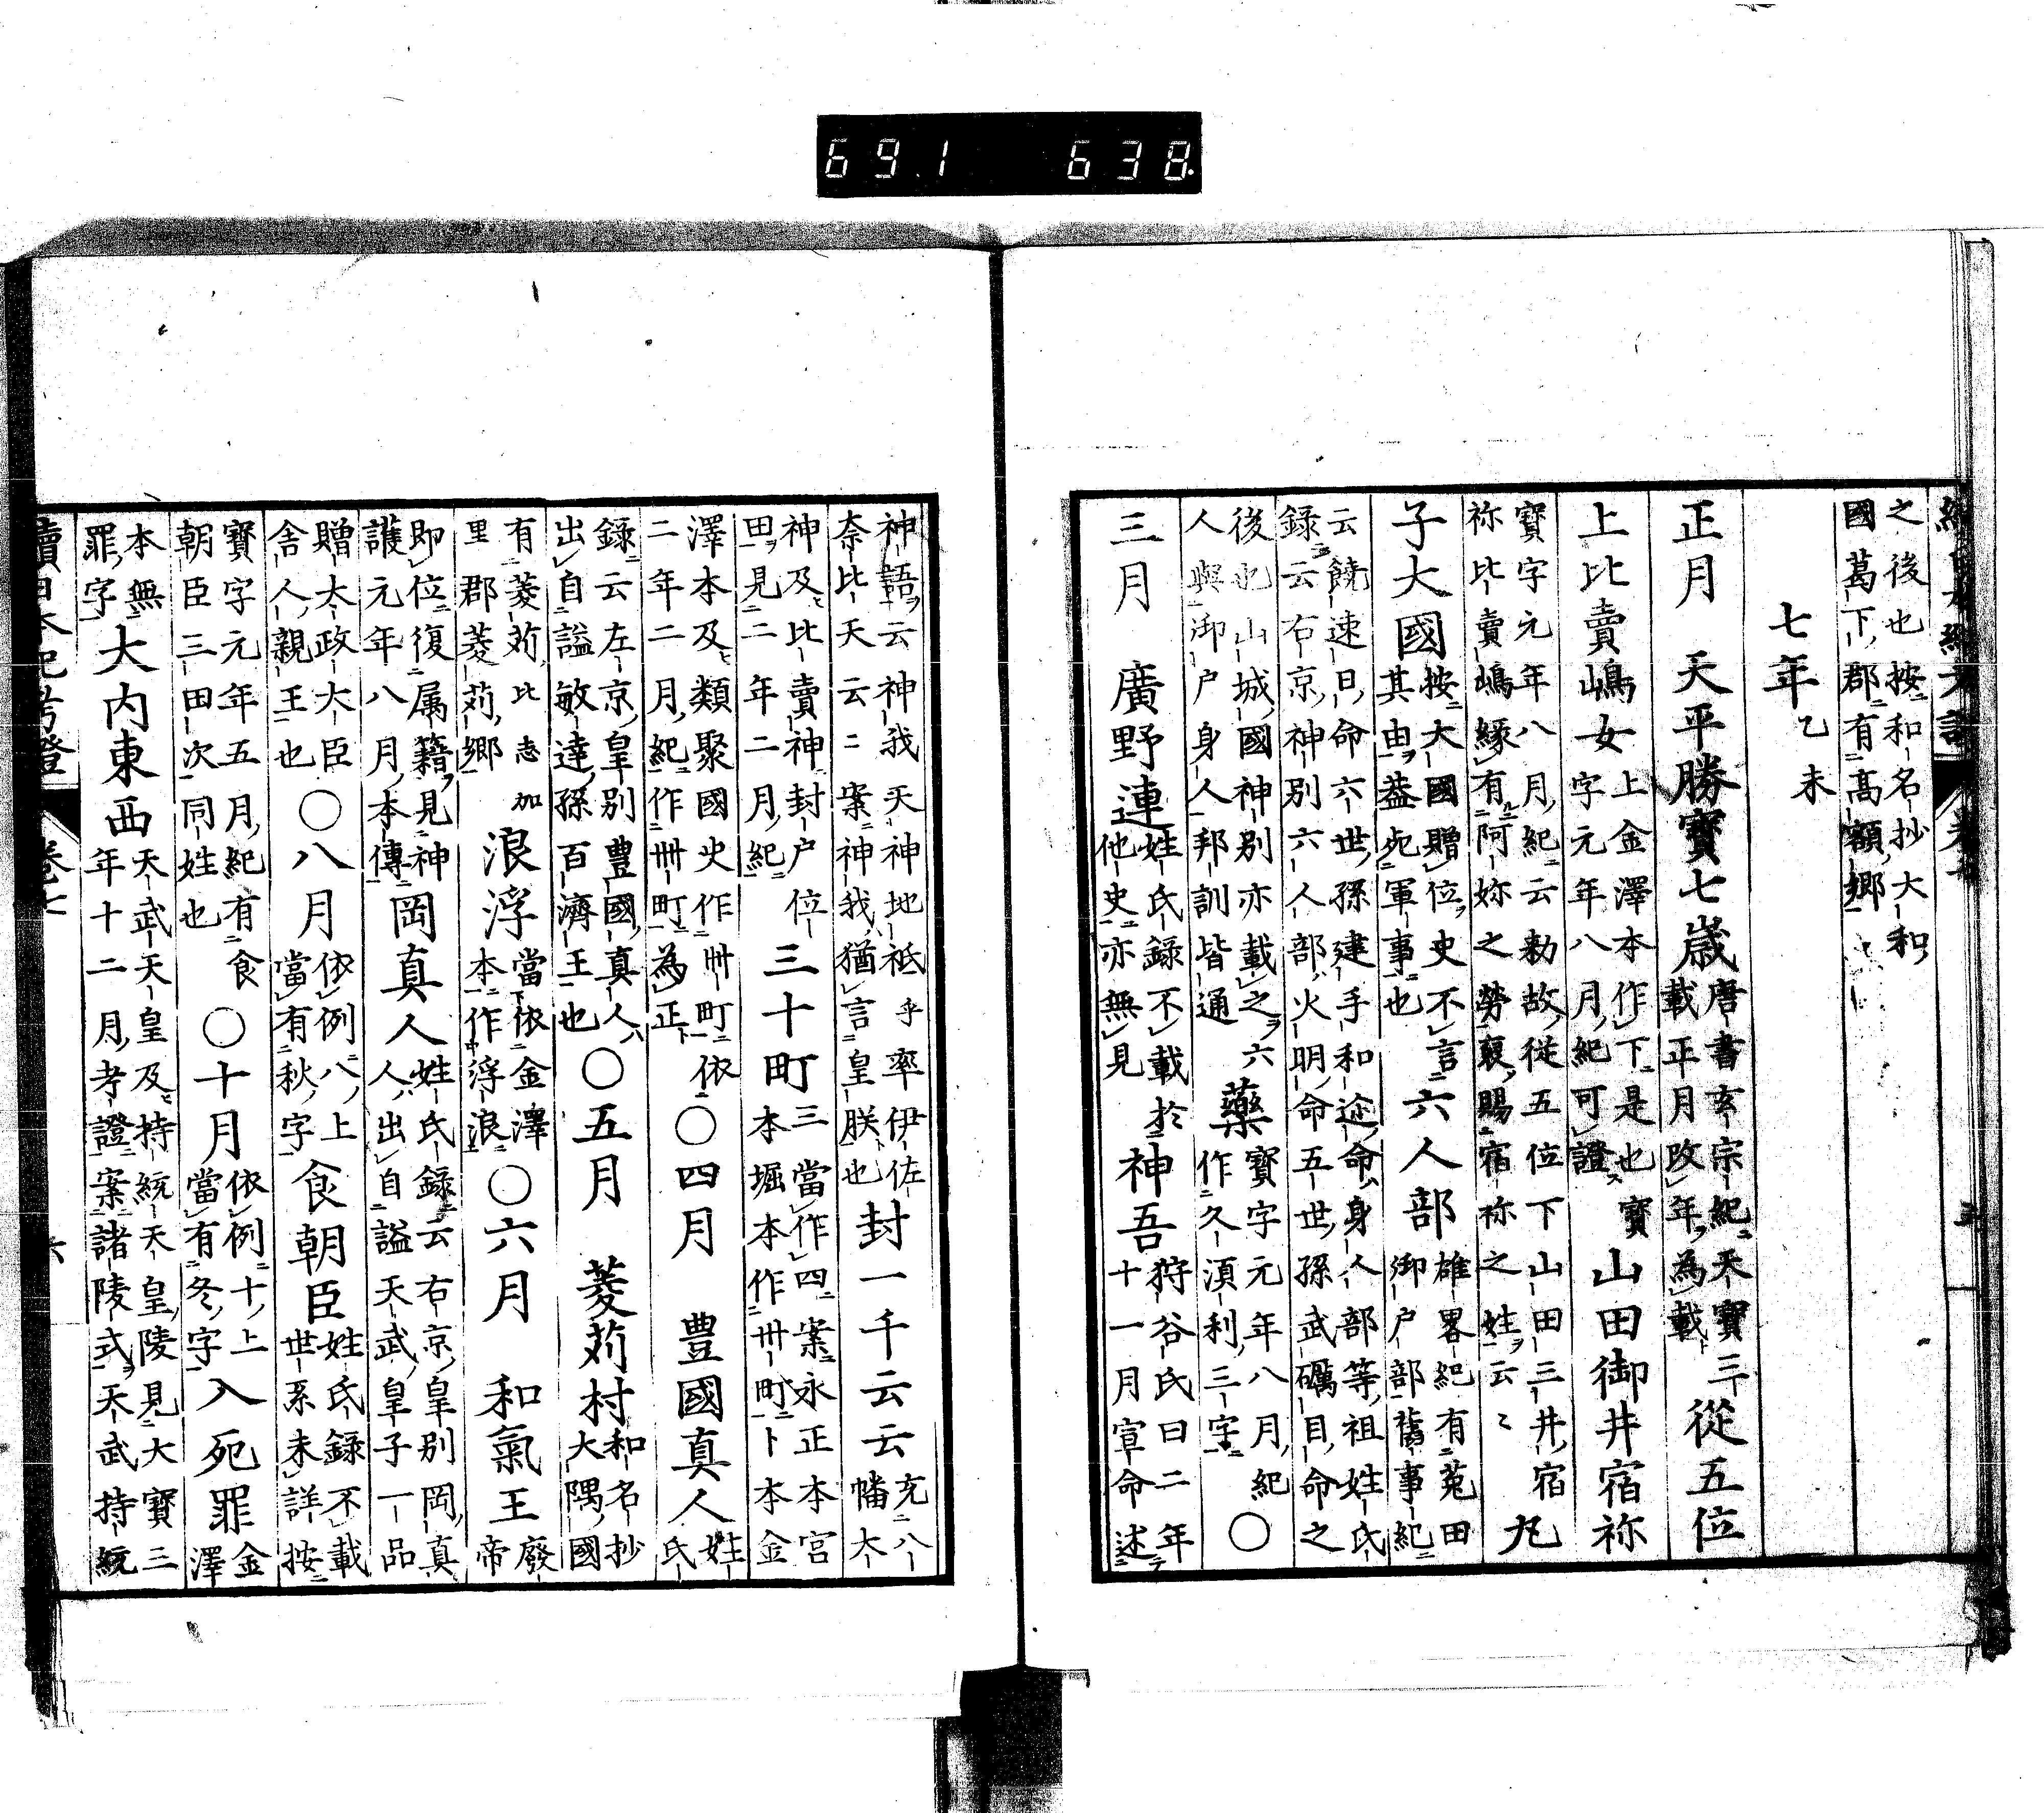 之後也按和名抄大和
國葛下郡有髙額郷
七年乙未
正月　天平勝寶七歲唐書玄宗紀天寶三載正月改年為載從五位
上比賣嶋女上金澤本作下是也寶字元年八月紀可證山田御井宿祢
寶字元年八月紀云勅故從五位下山田三井宿祢比賣嶋縁有阿妳之勞襃賜宿祢之姓云〻丸
子大國按大國贈位史不言其由葢死軍事也六人部雄畧紀有菟田御戸部舊事紀
云饒速日命六世孫建手和迩命身人部等祖姓氏録云右京神別六人部火明命五世孫武礪目命之
後也山城國神別亦載之六人與御戸身人邦訓皆通藥寶字元年八月紀作久湏利三字○
三月　廣野連姓氏録不載於他史亦無見神吾狩谷氏曰二年十一月宣命述
神語云神我天神地祇乎率伊佐奈比天云〻案神我猶言皇朕也封一千云云充八幡大
神及比賣神封户位田見二年二月紀三十町三當作四案永正本宮本堀本作卌町卜本金
澤本及類聚國史作卌町依二年二月紀作卌町為正○四月　豊國真人姓氏
録云左京皇別豊國真人出自謚敏達孫百濟王也○五月　菱苅村和名抄大隅國
有菱苅比志加里郡菱苅郷浪浮當依金澤本作浮浪○六月　和氣王廢帝
即位復属籍見神護元年八月本傳岡真人姓氏録云右京皇別岡真人出自謚天武皇子一品
贈太政大臣舎人親王也○八月依例八上當有秋字食朝臣姓氏録不載世系未詳按
寶字元年五月紀有食朝臣三田次同姓也○十月依例十上當有冬字入死罪金澤
本無罪字大内東西天武天皇及持統天皇陵見大寶三年十二月考證案諸陵式天武持統
續日本紀考證　卷七　六